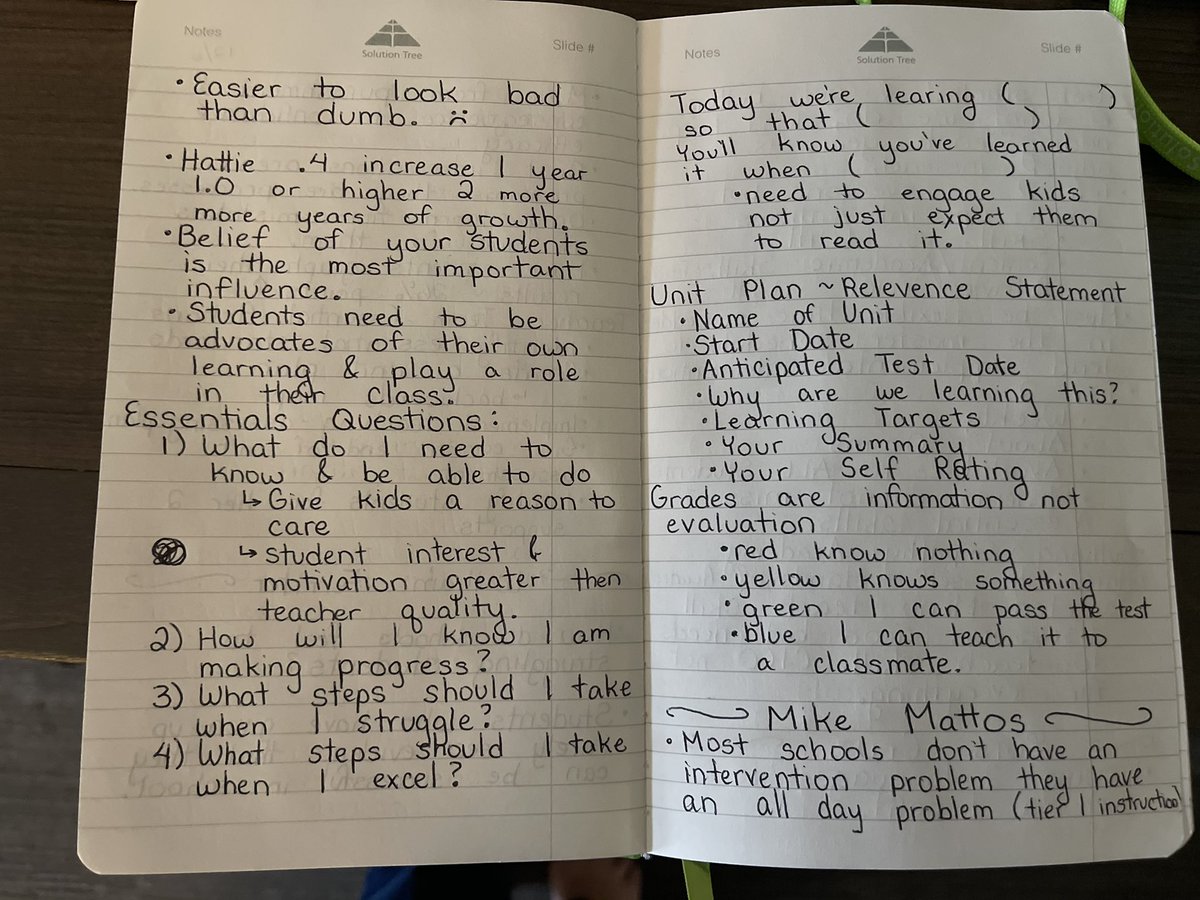 Notes
Solution Tree
Slide #
• Easier to look bad
than dumb. ☹
• Hattie .4 increase 1 year
1.0 or higher 2 more
more years of growth.
• Belief of your students
is the most important
influence.
• Students need to be
advocates of their own
learning & play a role
in their class.
Essentials Questions:
1) What do I need to
know & be able to do
↳ Give kids a reason to
care
↳ student interest &
motivation greater then
teacher quality.
2) How will I know I am
making progress?
3) What steps should I take
when I struggle?
4) What steps should I take
when I excel?
Notes
Solution Tree
Slide #
Today we're learing ( )
so that ( )
You'll know you've learned
it when ( )
• need to engage kids
not just expect them
to read it.
Unit Plan ~ Relevence Statement
• Name of Unit
• Start Date
• Anticipated Test Date
• Why are we learning this?
• Learning Targets
• Your Summary
• Your Self Rating
Grades are information not
evaluation
• red know nothing
• yellow knows something
• green I can pass the test
• blue I can teach it to
a classmate.
Mike Mattos
• Most schools don't have an
intervention problem they have
an all day problem (tier 1 instruction)